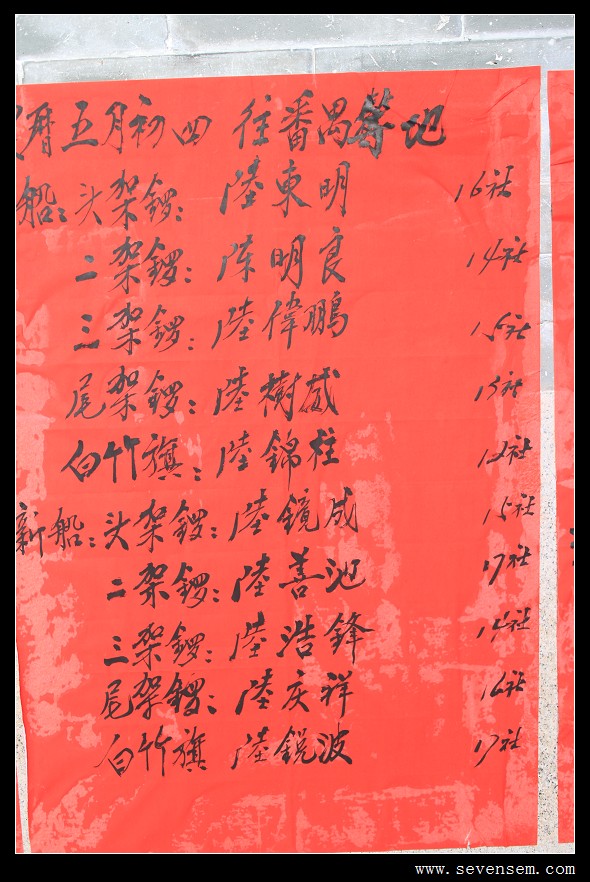 曆五月初四 往番禺等地
船：头架锣：陸東明 16社
二架锣：陈明良 14社
三架锣：陸偉鵬 15社
尾架锣：陸樹 社
白竹旗：陸錦柱 12社
新船：头架锣：陸鏡成 15社
二架锣：陸善池 17社
三架锣：陸浩鋒 14社
尾架锣：陸庆祥 16社
白竹旗 陸銳波 17社
www.sevensem.com